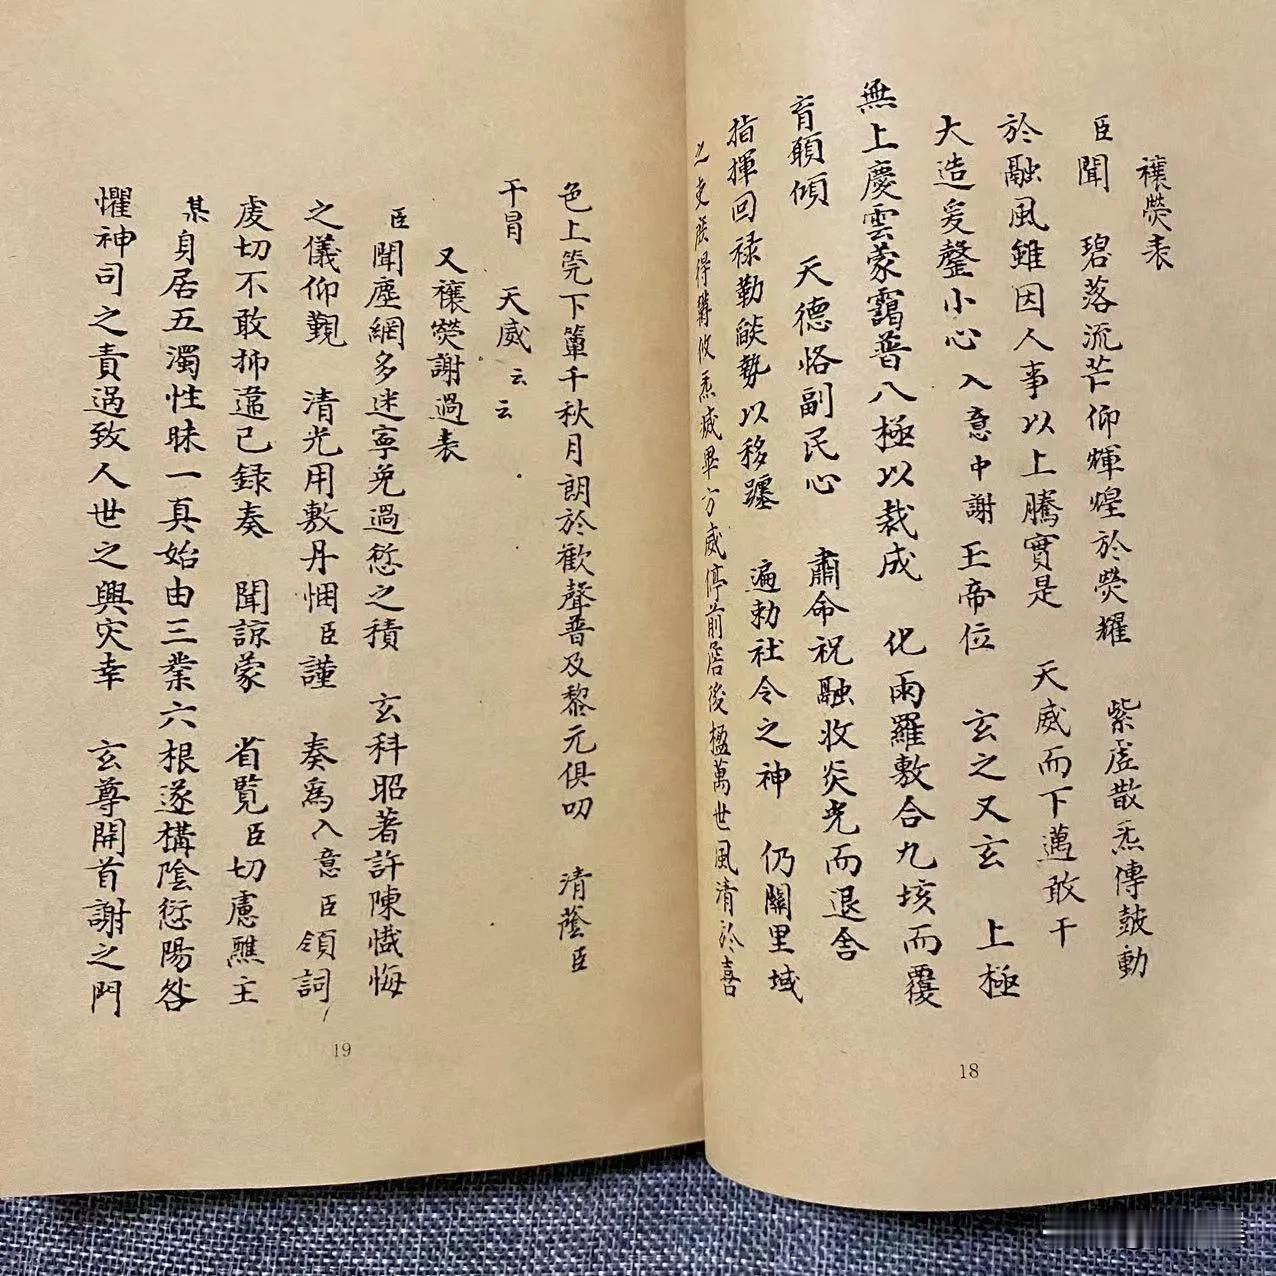 禳熒表
臣聞　碧落流芒仰輝煌於熒耀　紫虛散炁傳鼓動
於融風雖因人事以上騰實是　天威而下邁敢干
大造爰罄小心入意中謝　玉帝位　玄之又玄　上極
無上慶雲蒙靄普八極以裁成　化雨羅敷合九垓而覆
育頤傾　天德恪副民心　肅命祝融收炎光而退舍
指揮回祿勒燄勢以移躔　遍勅社令之神　仍關里域
之吏庶得攸炁滅畢方威停前詹後楹萬世風清於喜
色上筦下簟千秋月朗於歡聲普及黎元俱叨　清蔭臣
干冒　天威云云
又禳熒謝過表
臣聞塵網多迷寧免過愆之積　玄科昭著許陳懺悔
之儀仰覲　清光用敷丹悃臣謹　奏為入意臣領詞
虔切不敢抻違已録奏　聞諒蒙　省覽臣切慮醮主
某身居五濁性昧一真始由三業六根遂構陰愆陽咎
懼神司之責過致人世之興灾幸　玄尊開首謝之門
19
18